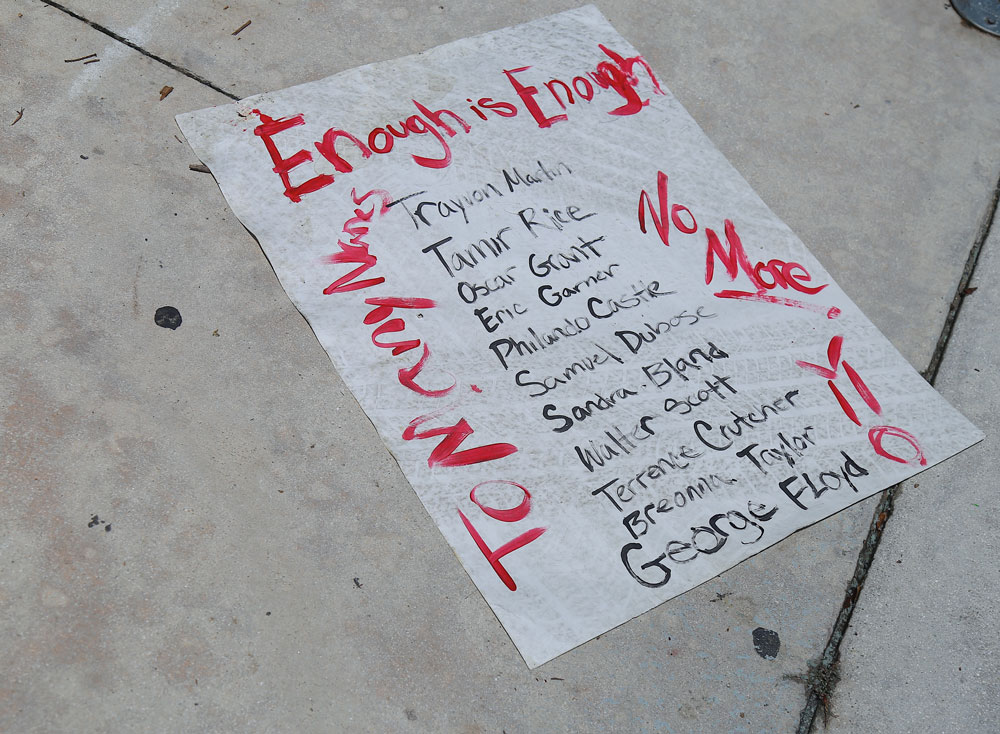 Enough is Enough
To Many Names
Trayvon Martin
Tamir Rice
Oscar Grant
Eric Garner
Philando Castile
Samuel Dubose
Sandra Bland
Walter Scott
Terrence Crutcher
Breonna Taylor
George FLoyd
No
More